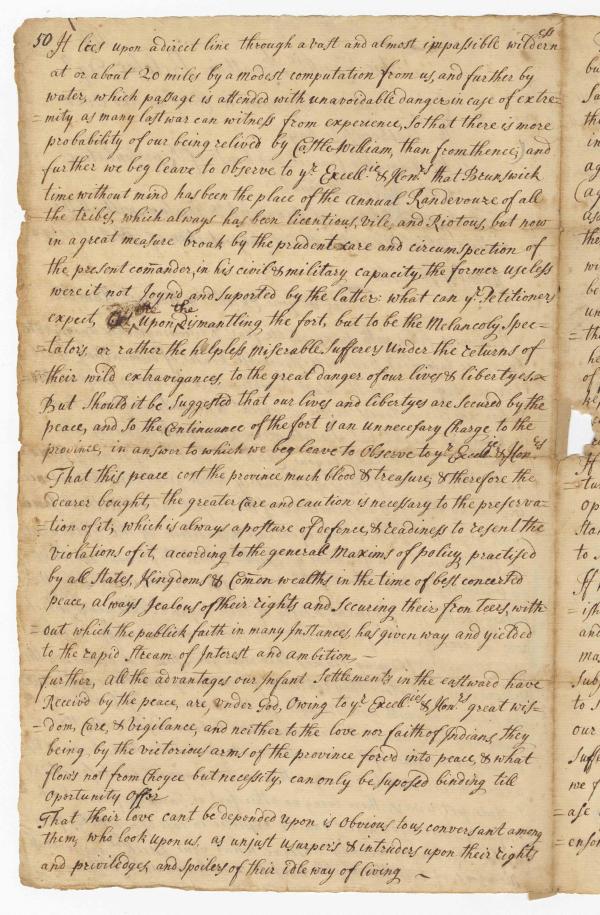 50 It lies upon a direct line through a vast and almost impassible wildern
ess
at or about 20 miles by a modest computation from us, and further by
water, which passage is attended with unavoidable danger in case of extre-
=mity as many last war can witness from experience, So that there is more
probability of our being relived by Castle William, than from thence; and
further we beg leave to observe to yr Excell:cie & Honrs that Brunswick
time without mind has been the place of the annual Randevouze of all
the tribes, which always has been licentious, vile, and Riotous, but now
in a great measure broak by the prudent care and circumspection of
the present comander, in his civil & military capacity, the former useless
were it not Joyn'd and suported by the latter: what can yr Petitioners
expect, upon the Dismantling the fort, but to be the Melancoly Spec-
=tators, or rather the helpless miserable Sufferers under the returns of
their wild extravigances, to the great danger of our lives & libertyes
But Should it be Suggested that our lives and libertyes are secured by the
peace, and so the Continuance of the fort is an unnecesary Charge to the
province, in answor to which we beg leave to observe to yr Excellcie & Honrs
That this peace cost the province much blood & treasure, & therefore the
dearer bought, the greater Care and caution is necessary to the preserva-
=tion of it, which is always a posture of defence, & readiness to resent the
violations of it, according to the general maxims of policy, practised
by all States, Kingdoms & Comon wealths in the time of best concerted
peace, always Jealous of their rights and securing their fronteers, with-
=out which the publick faith in many Instances, has given way and yielded
to the rapid stream of Interest and ambition, —
further, all the advantages our Infant Settlements in the eastward have
Receiv'd by the peace, are, under God, Owing to yr Excellcies & Honrs great wis-
=dom, Care, & vigilance, and neither to the love nor faith of Indians, they
being by the victorious arms of the province forc'd into peace, & what
flows not from Choyce but necessity, can only be suposed binding till
oportunity offer
That their love cant be deponded upon is obvious to us, conversant among
them, who look upon us, as unjust usurpers & intruders upon their rights
and priviledges, and spoilers of their idle way of living —